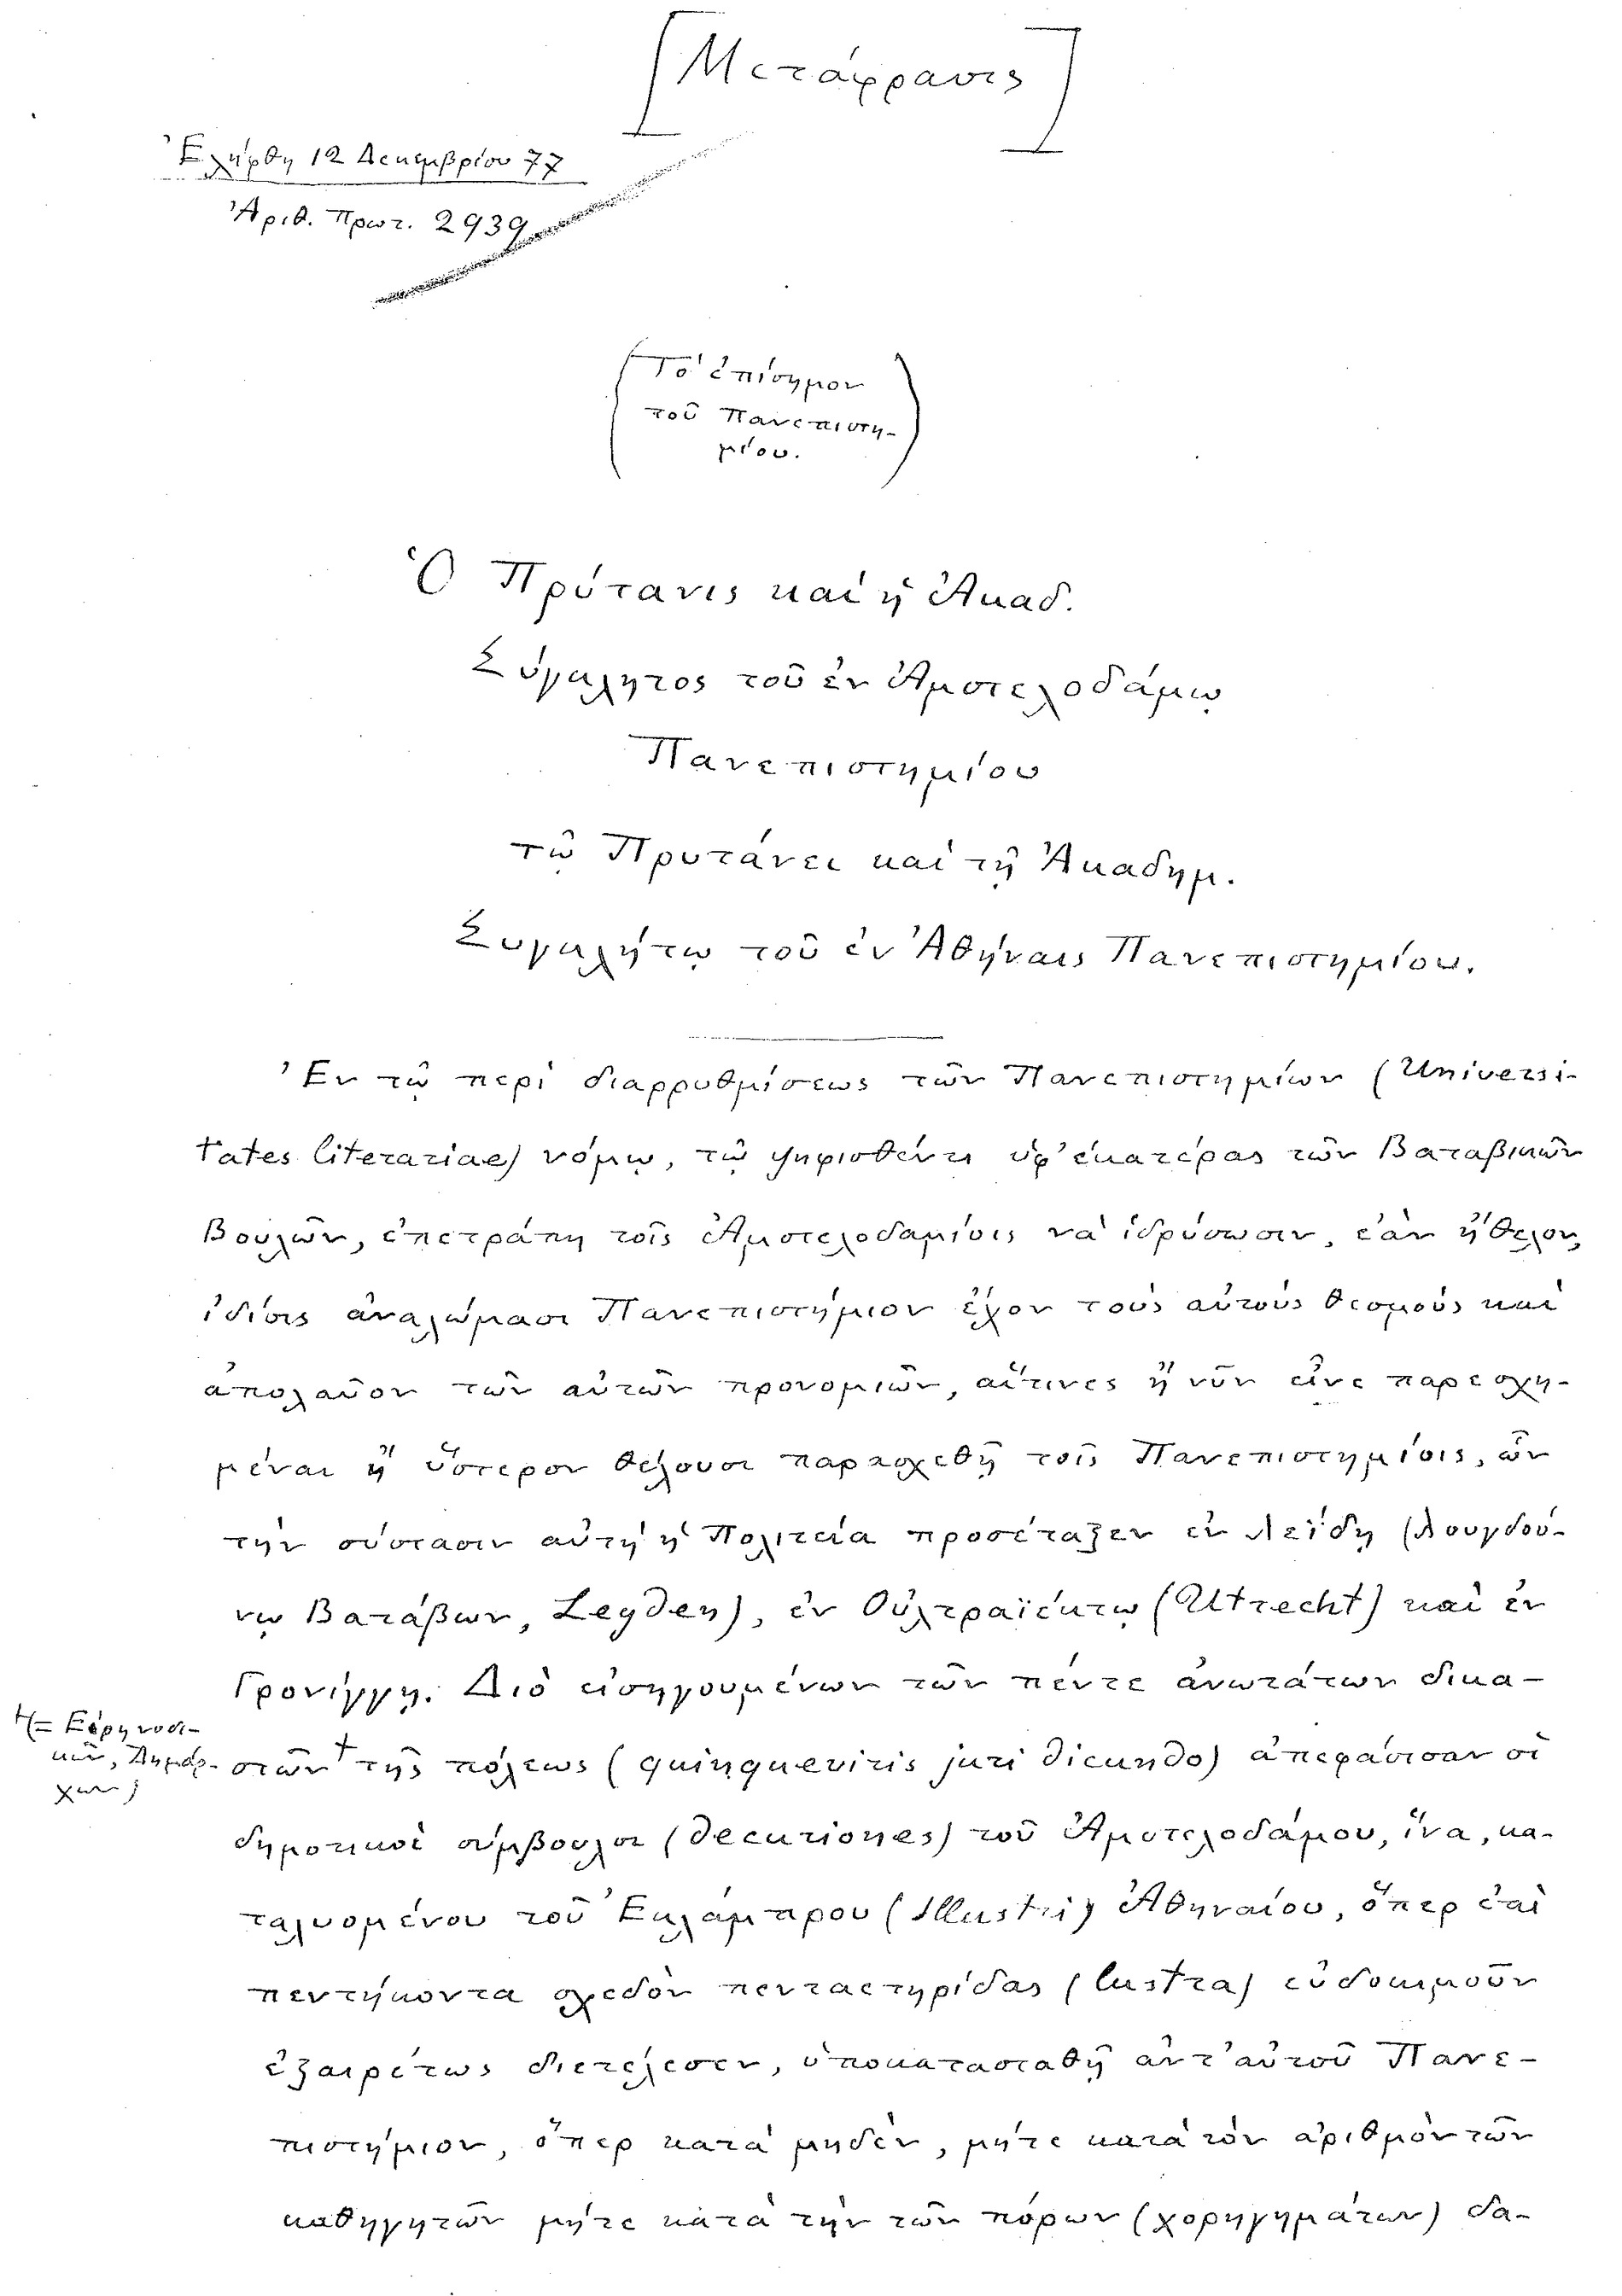 [Μετάφρασις]
Ἐλήφθη 12 Δεκεμβρίου 77
Ἀριθ. Πρωτ. 2939
(Τὸ ἐπίσημον
τοῦ Πανεπιστη-
μίου.)
Ὁ Πρύτανις καὶ ἡ Ἀκαδ.
Σύγκλητος τοῦ ἐν Ἀμστελοδάμῳ
Πανεπιστημίου
τῷ Πρυτάνει καὶ τῇ Ἀκαδημ.
Συγκλήτῳ τοῦ ἐν Ἀθήναις Πανεπιστημίου.
Ἐν τῷ περὶ διαρρυθμίσεως τῶν Πανεπιστημίων (Universi-
tates literariae) νόμῳ, τῷ ψηφισθέντι ὑφ' ἑκατέρας τῶν Βαταβικῶν
Βουλῶν, ἐπετράπη τοῖς Ἀμστελοδαμίοις νὰ ἱδρύσωσιν, ἐὰν ἤθελον,
ἰδίοις ἀναλώμασι Πανεπιστήμιον ἔχον τοὺς αὐτοὺς θεσμοὺς καὶ
ἀπολαῦον τῶν αὐτῶν προνομιῶν, αἵτινες ἢ νῦν εἶνε παρεσχη-
μέναι ἢ ὕστερον θέλουσι παρασχεθῆ τοῖς Πανεπιστημίοις, ὧν
τὴν σύστασιν αὐτὴ ἡ Πολιτεία προσέταξεν ἐν Λεΐδῃ (Λουγδού-
νῳ Βατάβων, Leyden), ἐν Οὐλτραϊέκτῳ (Utrecht) καὶ ἐν
Γρονίγγῃ. Διὸ εἰσηγουμένων τῶν πέντε ἀνωτάτων δικα-
στῶν † τῆς πόλεως (quinqueviris juri dicundo) ἀπεφάσισαν οἱ
†(= Εἰρηνοδι-
κῶν, Δημάρ-
χων)
δημοτικοὶ σύμβουλοι (decuriones) τοῦ Ἀμστελοδάμου, ἵνα, κα-
ταλυομένου τοῦ Ἐκλάμπρου (Illustris) Ἀθηναίου, ὅπερ ἐπὶ
πεντήκοντα σχεδὸν πενταετηρίδας (lustra) εὐδοκιμοῦν
ἐξαιρέτως διετέλεσεν, ὑποκατασταθῇ ἀντ' αὐτοῦ Πανε-
πιστήμιον, ὅπερ κατὰ μηδὲν, μήτε κατὰ τὸν ἀριθμὸν τῶν
καθηγητῶν μήτε κατὰ τὴν τῶν πόρων (χορηγημάτων) δα-